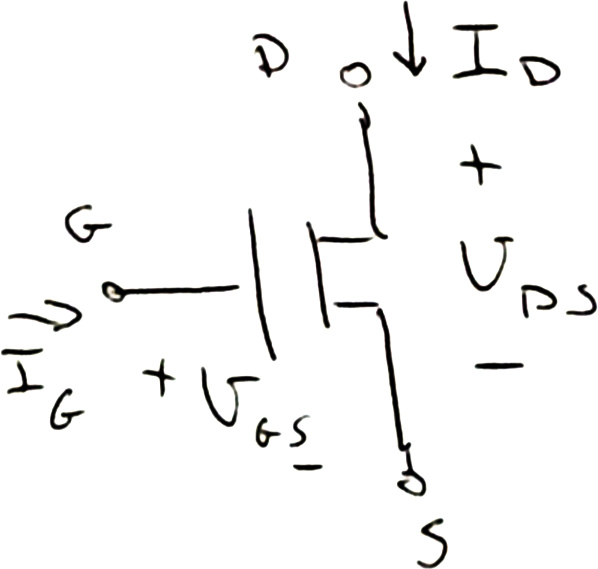 D ↓ I_D
+
G
V_DS
I_G + V_GS -
-
S